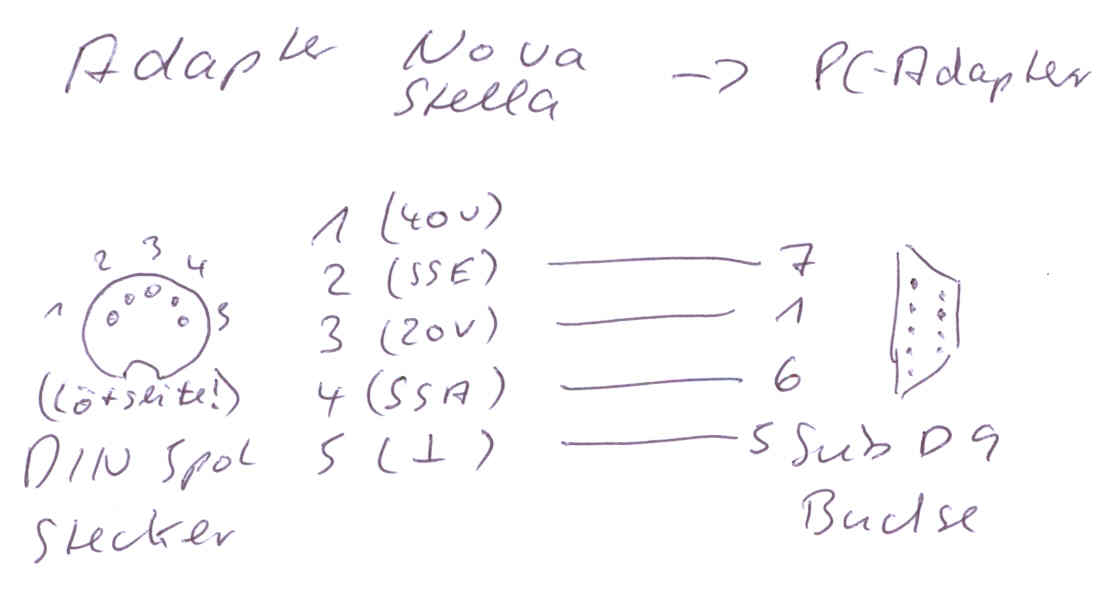 Adapter Nova Stella -> PC-Adapter
1 (40V)
2 (SSE) 7
3 (20V) 1
4 (SSA) 6
5 (⊥) 5
1 2 3 4 5
(Lötseite!)
DIN 5pol
Stecker
Sub D 9
Buchse